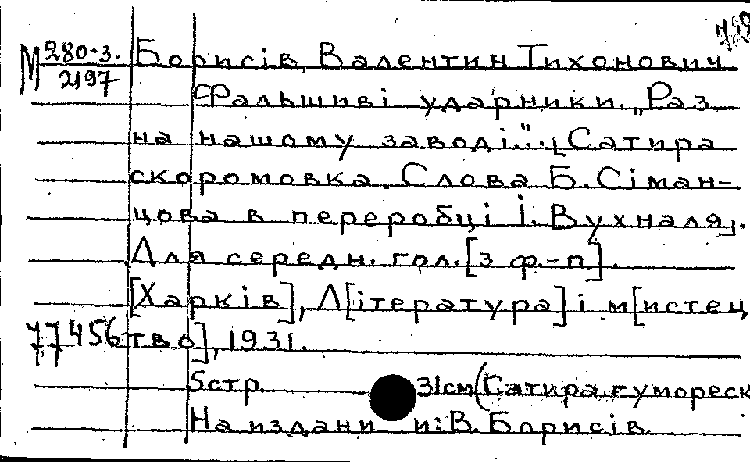 М 280-3. Борисів, Валентин Тихонович
2197
Фальшиві ударники. „Раз
на нашому заводі..." [Сатира
скоромовка. Слова Б. Сіман-
цова в переробці І. Вухналя].
Для середн. гол. [з ф.-п].
[Харків], Л[ітература] і м[истец
77456 тво], 1931.
5стр. 31см (Сатира-гумореск
На издании: В. Борисів.